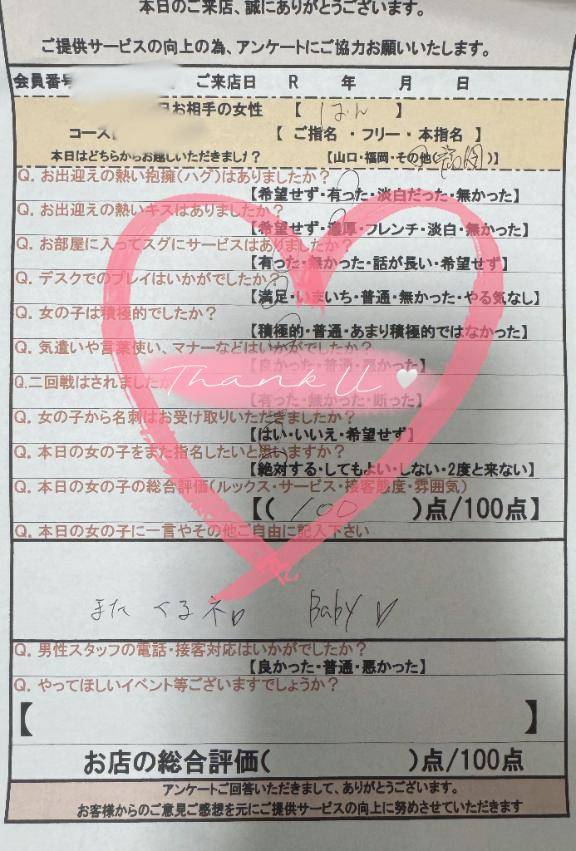 本日のご来店、誠にありがとうございます。
ご提供サービスの向上の為、アンケートにご協力お願いいたします。
会員番号 ご来店日 R 年 月 日
日お相手の女性 【 】
コース【 【 ご指名 ・ フリー ・ 本指名 】
本日はどちらからお越しいただきました? 【山口・福岡・その他( )】
Q. お出迎えの熱い抱擁(ハグ)はありましたか?
【希望せず・有った・淡白だった・無かった】
Q. お出迎えの熱いキスはありましたか?
【希望せず・濃厚・フレンチ・淡白・無かった】
Q. お部屋に入ってスグにサービスはありましたか?
【有った・無かった・話が長い・希望せず】
Q. デスクでのプレイはいかがでしたか?
【満足・いまいち・普通・無かった・やる気なし】
Q. 女の子は積極的でしたか?
【積極的・普通・あまり積極的ではなかった】
Q. 気遣いや言葉使い、マナーなどはいかがでしたか?
【良かった・普通・悪かった】
Thank U
Q.二回戦はされましたか
【有った・無かった・断った】
Q. 女の子から名刺はお受け取りいただきましたか?
【はい・いいえ・希望せず】
Q. 本日の女の子をまた指名したいと思いますか?
【絶対する・してもよい・しない・2度と来ない】
Q. 本日の女の子の総合評価(ルックス・サービス・接客態度・雰囲気)
【( 100 )点/100点】
Q. 本日の女の子に一言やその他ご自由に記入下さい
また くるネ♡ Baby♡
Q. 男性スタッフの電話・接客対応はいかがでしたか?
【良かった・普通・悪かった】
Q. やってほしいイベント等ございますでしょうか?
【 】
お店の総合評価( )点/100点
アンケートご回答いただきまして、ありがとうございます。
お客様からのご意見ご感想を元にご提供サービスの向上に努めさせていただきます